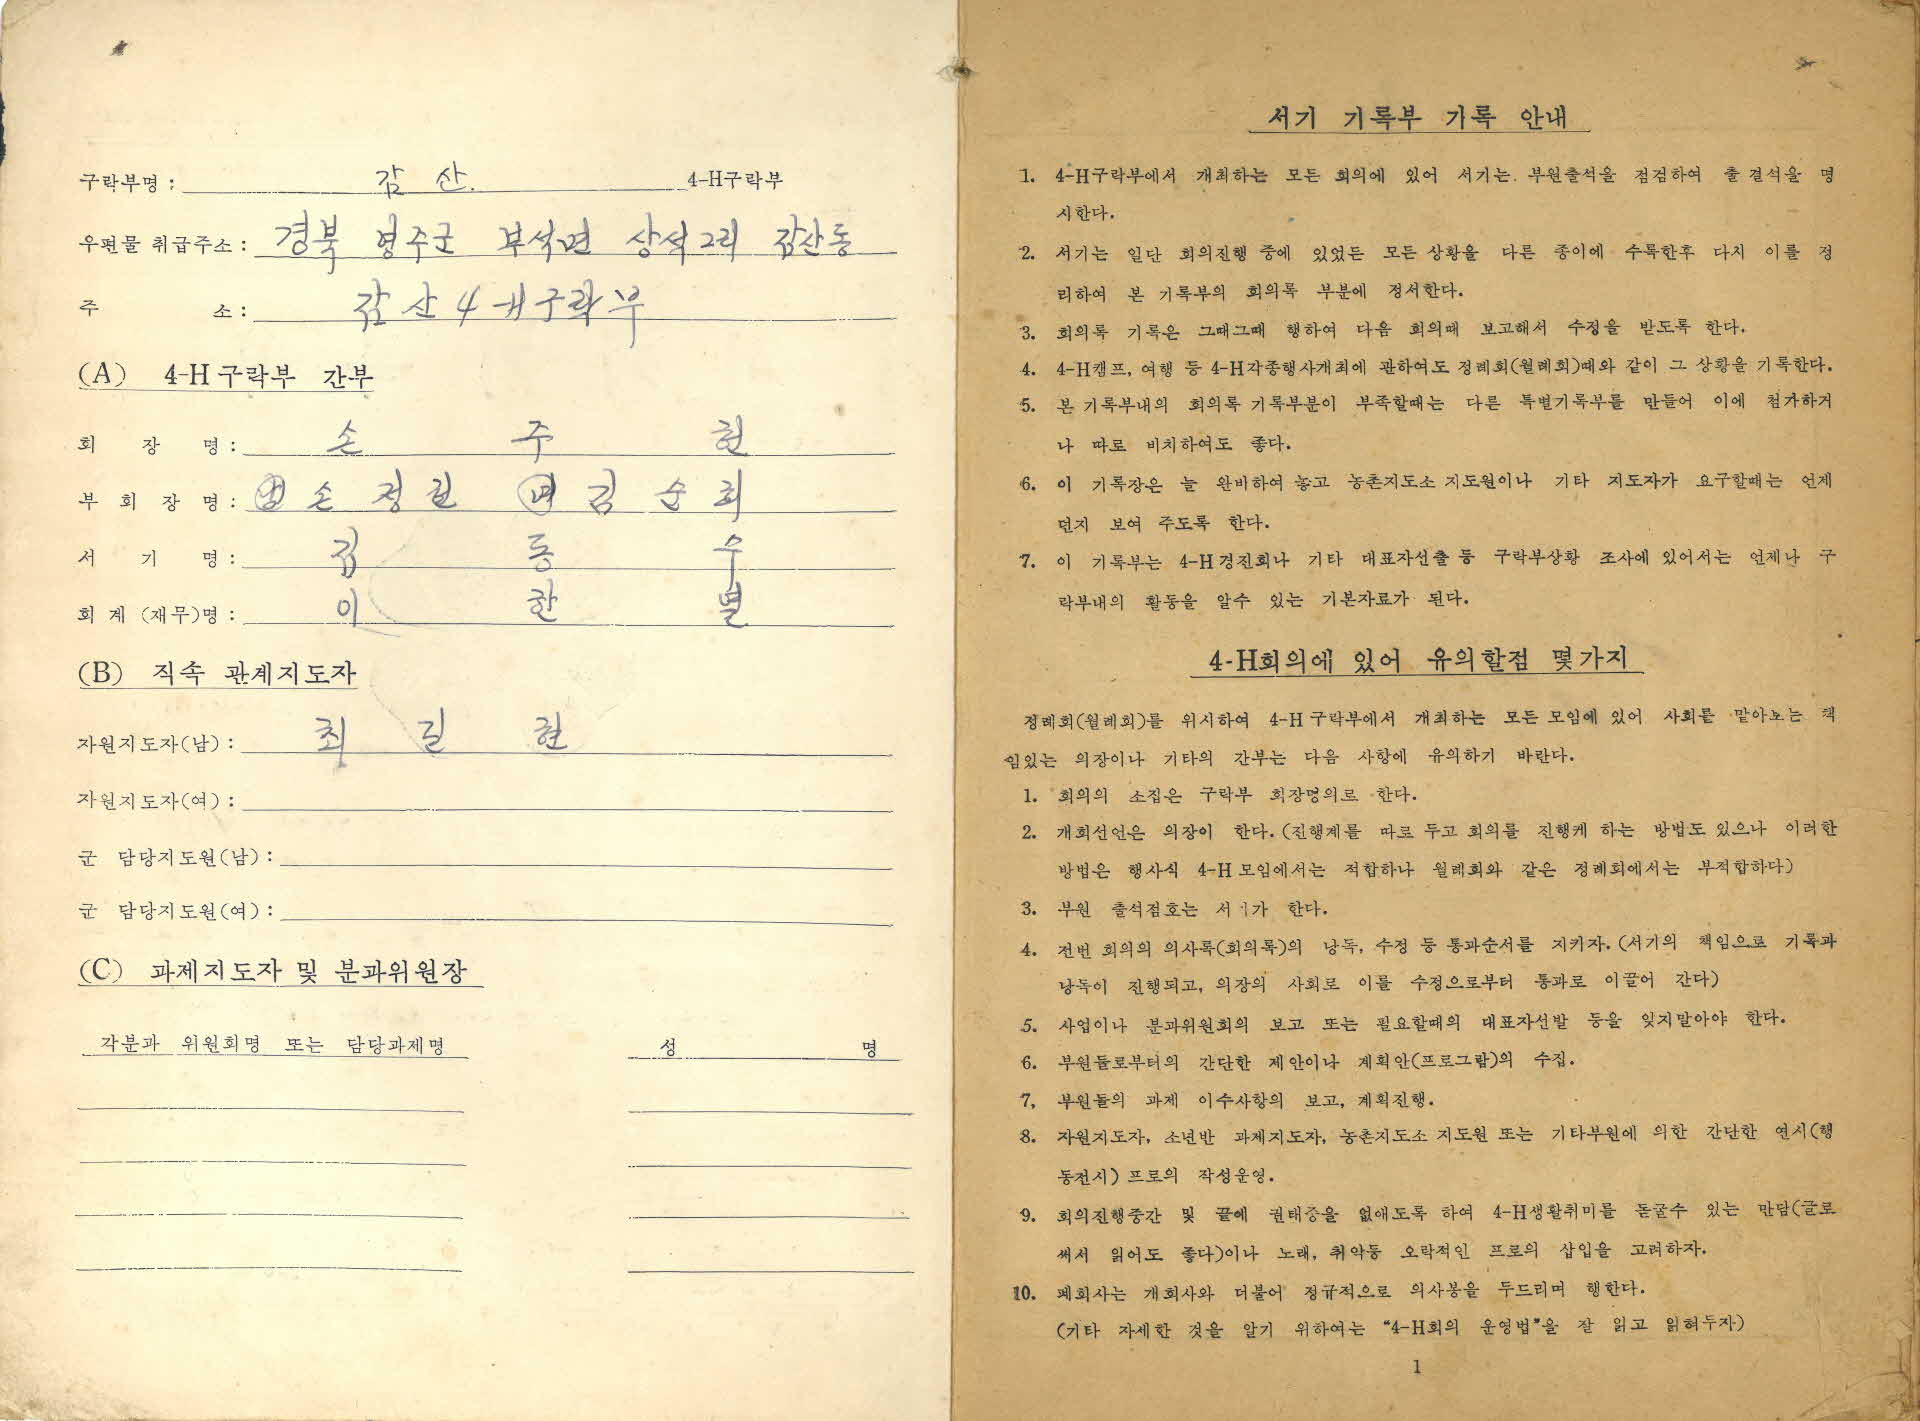 구락부명 : 감 산. 4-H구락부
우편물 취급주소 : 경북 영주군 부석면 상석2리 감산동
주 소 : 감산 4-H구락부
(A) 4-H구락부 간부
회 장 명 : 손 주 현
부 회 장 명 : 손 정 길 김 순 희
서 기 명 : 김 동 수
회 계 (재무)명 : 이 한 별
(B) 직속 관계지도자
자원지도자(남) : 최 길 현
자원지도자(여) :
군 담당지도원(남) :
군 담당지도원(여) :
(C) 과제지도자 및 분과위원장
각분과 위원회명 또는 담당과제명 성 명
서기 기록부 기록 안내
1. 4-H구락부에서 개최하는 모든 회의에 있어 서기는 부원출석을 점검하여 출결석을 명
시한다.
2. 서기는 일단 회의진행 중에 있었든 모든 상황을 다른 종이에 수록한후 다시 이를 정
리하여 본 기록부의 회의록 부분에 정서한다.
3. 회의록 기록은 그때그때 행하여 다음 회의때 보고해서 수정을 받도록 한다.
4. 4-H캠프, 여행 등 4-H각종행사개최에 관하여도 정례회(월례회)때와 같이 그 상황을 기록한다.
5. 본 기록부내의 회의록 기록부분이 부족할때는 다른 특별기록부를 만들어 이에 첨가하거
나 따로 비치하여도 좋다.
6. 이 기록장은 늘 완비하여 놓고 농촌지도소 지도원이나 기타 지도자가 요구할때는 언제
던지 보여 주도록 한다.
7. 이 기록부는 4-H경진회나 기타 대표자선출 등 구락부상황 조사에 있어서는 언제나 구
락부내의 활동을 알수 있는 기본자료가 된다.
4-H회의에 있어 유의할점 몇가지
정례회(월례회)를 위시하여 4-H구락부에서 개최하는 모든 모임에 있어 사회를 맡아보는 책
임있는 의장이나 기타의 간부는 다음 사항에 유의하기 바란다.
1. 회의의 소집은 구락부 회장명의로 한다.
2. 개회선언은 의장이 한다. (진행계를 따로 두고 회의를 진행케 하는 방법도 있으나 이러한
방법은 행사식 4-H모임에서는 적합하나 월례회와 같은 정례회에서는 부적합하다)
3. 부원 출석점호는 서기가 한다.
4. 전번 회의의 의사록(회의록)의 낭독, 수정 등 통과순서를 지키자. (서기의 책임으로 기록과
낭독이 진행되고, 의장의 사회로 이를 수정으로부터 통과로 이끌어 간다)
5. 사업이나 분과위원회의 보고 또는 필요할때의 대표자선발 등을 잊지말아야 한다.
6. 부원들로부터의 간단한 제안이나 계획안(프로그람)의 수집.
7. 부원들의 과제 이수사항의 보고, 계획진행.
8. 자원지도자, 소년반 과제지도자, 농촌지도소 지도원 또는 기타부원에 의한 간단한 연시(행
동전시) 프로의 작성운영.
9. 회의진행중간 및 끝에 권태증을 없애도록 하여 4-H생활취미를 돋굴수 있는 만담(글로
써서 읽어도 좋다)이나 노래, 취악등 오락적인 프로의 삽입을 고려하자.
10. 폐회사는 개회사와 더불어 정규적으로 의사봉을 두드리며 행한다.
(기타 자세한 것을 알기 위하여는 "4-H회의 운영법"을 잘 읽고 읽혀두자)
1